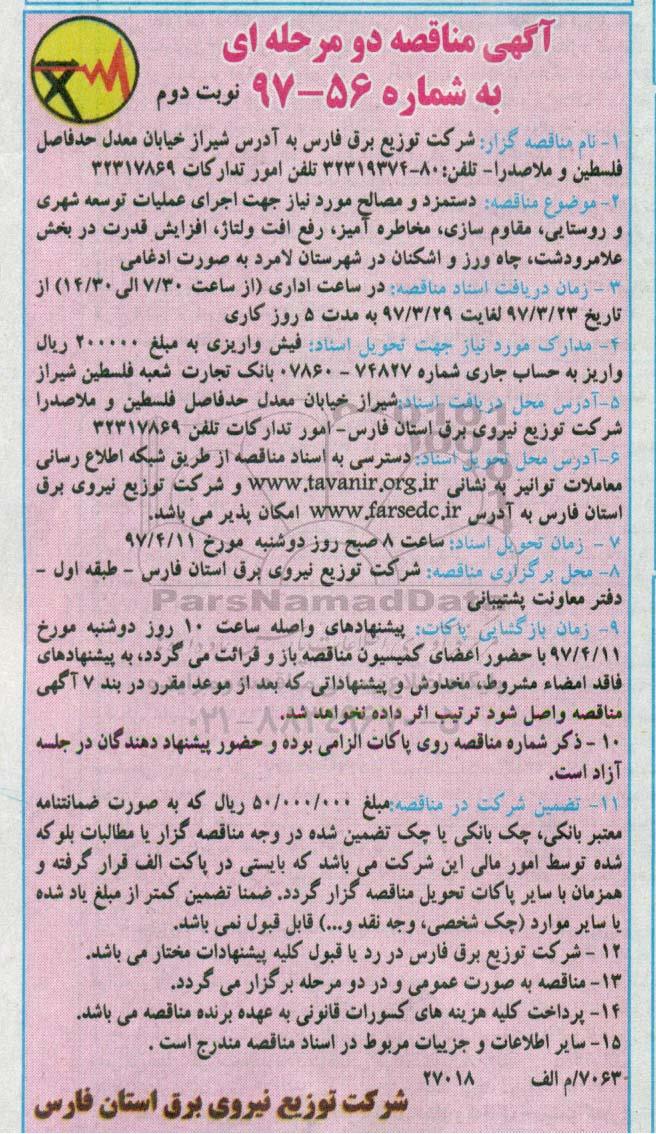 آگهی مناقصه دو مرحله ای
به شماره ۵۶-۹۷ نوبت دوم
۱- نام مناقصه گزار: شرکت توزیع برق فارس به آدرس شیراز خیابان معدل حدفاصل
فلسطین و ملاصدرا- تلفن: ۸۰-۳۲۳۱۹۳۷۴ تلفن امور تدارکات ۳۲۳۱۷۸۶۹
۲- موضوع مناقصه: دستمزد و مصالح مورد نیاز جهت اجرای عملیات توسعه شهری
و روستایی، مقاوم سازی، مخاطره آمیز، رفع افت ولتاژ، افزایش قدرت در بخش
علامرودشت، چاه ورز و اشکنان در شهرستان لامرد به صورت ادغامی
۳ - زمان دریافت اسناد مناقصه: در ساعت اداری (از ساعت ۷/۳۰ الی ۱۴/۳۰) از
تاریخ ۹۷/۳/۲۳ لغایت ۹۷/۳/۲۹ به مدت ۵ روز کاری
۴- مدارک مورد نیاز جهت تحویل اسناد: فیش واریزی به مبلغ ۲۰۰۰۰۰ ریال
واریز به حساب جاری شماره ۷۴۸۲۷ - ۰۷۸۶۰ بانک تجارت شعبه فلسطین شیراز
۵-آدرس محل دریافت اسناد: شیراز خیابان معدل حدفاصل فلسطین و ملاصدرا
شرکت توزیع نیروی برق استان فارس- امور تدارکات تلفن ۳۲۳۱۷۸۶۹
۶-آدرس محل تحویل اسناد: دسترسی به اسناد مناقصه از طریق شبکه اطلاع رسانی
معاملات توانیر به نشانی www.tavanir.org.ir و شرکت توزیع نیروی برق
استان فارس به آدرس www.farsedc.ir امکان پذیر می باشد.
۷ - زمان تحویل اسناد: ساعت ۸ صبح روز دوشنبه مورخ ۹۷/۴/۱۱
۸- محل برگزاری مناقصه: شرکت توزیع نیروی برق استان فارس - طبقه اول -
دفتر معاونت پشتیبانی
ParsNamadData
۹- زمان بازگشایی پاکات: پیشنهادهای واصله ساعت ۱۰ روز دوشنبه مورخ
۹۷/۴/۱۱ با حضور اعضای کمیسیون مناقصه باز و قرائت می گردد، به پیشنهادهای
فاقد امضاء مشروط، مخدوش و پیشنهاداتی که بعد از موعد مقرر در بند ۷ آگهی
مناقصه واصل شود ترتیب اثر داده نخواهد شد.
۱۰ - ذکر شماره مناقصه روی پاکات الزامی بوده و حضور پیشنهاد دهندگان در جلسه
آزاد است.
۱۱- تضمین شرکت در مناقصه: مبلغ ۵۰/۰۰۰/۰۰۰ ریال که به صورت ضمانتنامه
معتبر بانکی، چک بانکی یا چک تضمین شده در وجه مناقصه گزار یا مطالبات بلوکه
شده توسط امور مالی این شرکت می باشد که بایستی در پاکت الف قرار گرفته و
همزمان با سایر پاکات تحویل مناقصه گزار گردد. ضمنا تضمین کمتر از مبلغ یاد شده
یا سایر موارد (چک شخصی، وجه نقد و...) قابل قبول نمی باشد.
۱۲ - شرکت توزیع برق فارس در رد یا قبول کلیه پیشنهادات مختار می باشد.
۱۳- مناقصه به صورت عمومی و در دو مرحله برگزار می گردد.
۱۴- پرداخت کلیه هزینه های کسورات قانونی به عهده برنده مناقصه می باشد.
۱۵- سایر اطلاعات و جزییات مربوط در اسناد مناقصه مندرج است .
۷۰۶۳/م الف ۲۷۰۱۸
شرکت توزیع نیروی برق استان فارس